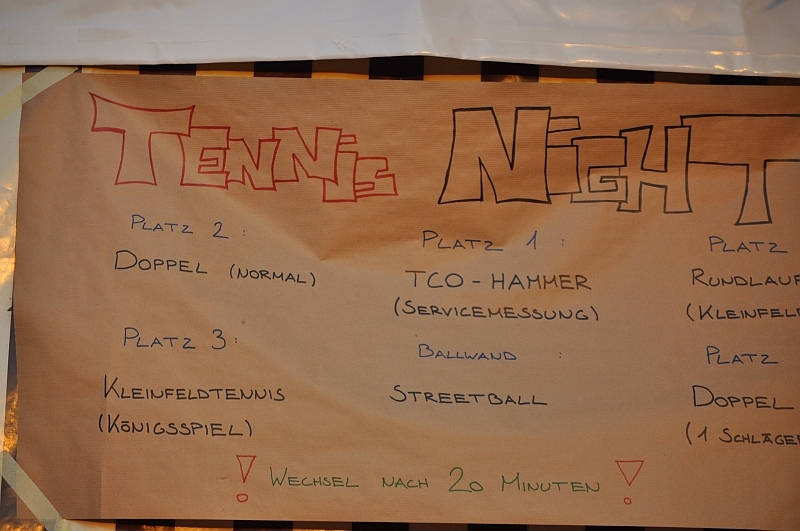 TENNIS NIGHT
PLATZ 2 :
DOPPEL (NORMAL)
PLATZ 3 :
KLEINFELDTENNIS
(KÖNIGSSPIEL)
PLATZ 1 :
TCO - HAMMER
(SERVICEMESSUNG)
BALLWAND :
STREETBALL
PLATZ
RUNDLAUF
(KLEINFELD
PLATZ
DOPPEL
(1 SCHLÄGER
! WECHSEL NACH 20 MINUTEN !